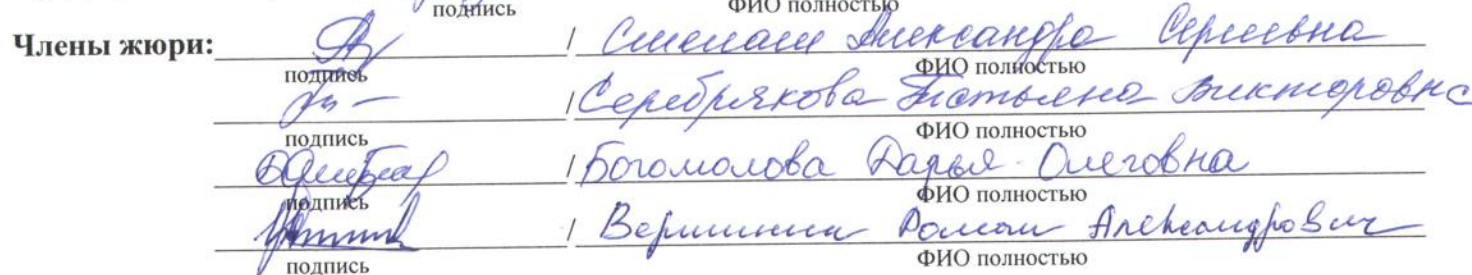 подпись ФИО полностью
Члены жюри: / Александра Сергеевна
подпись ФИО полностью
/ Серебрякова Татьяна Викторовна
подпись ФИО полностью
/ Богомолова Дарья Олеговна
подпись ФИО полностью
/ Вершинин Роман Александрович
подпись ФИО полностью